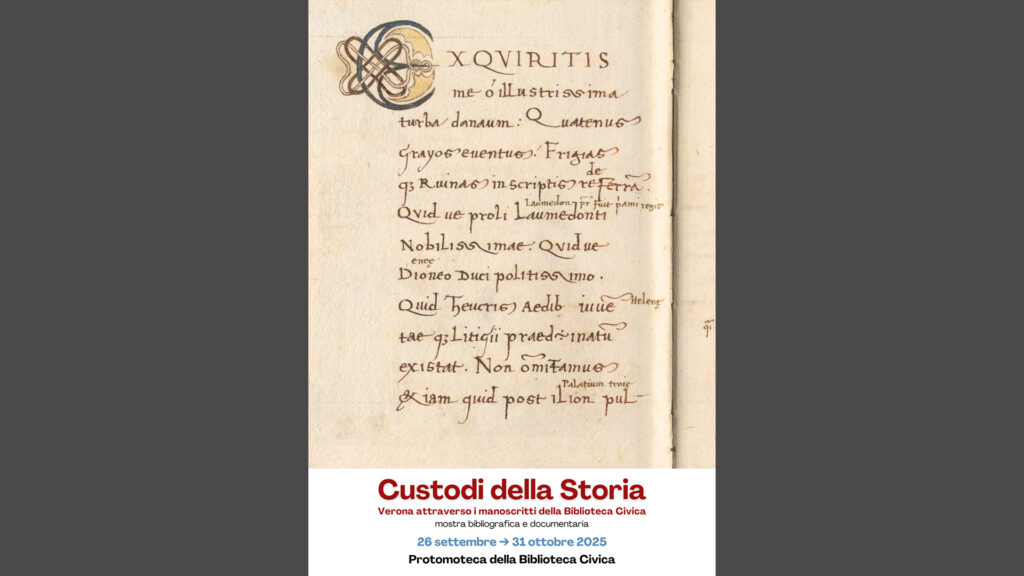 EXQVIRITIS
me ó illustrissima
turba danaum: Quatenus
Grayos eventus. Frigias
de
q3 Ruinas in scriptis re Ferrā.
Laumedon pr̄ fuit pami regis
Quid ve proli Laumedonti
Nobilissimae. Quid ve
eneę
Dioneo Duci politissimo.
Quid Theucris Aedib iuvē
Helenę
tae q3 Litigii praed inatū
existat. Non omīttamus
Palatium troię
&iam quid post ilion pul-
Custodi della Storia
Verona attraverso i manoscritti della Biblioteca Civica
mostra bibliografica e documentaria
26 settembre → 31 ottobre 2025
Protomoteca della Biblioteca Civica